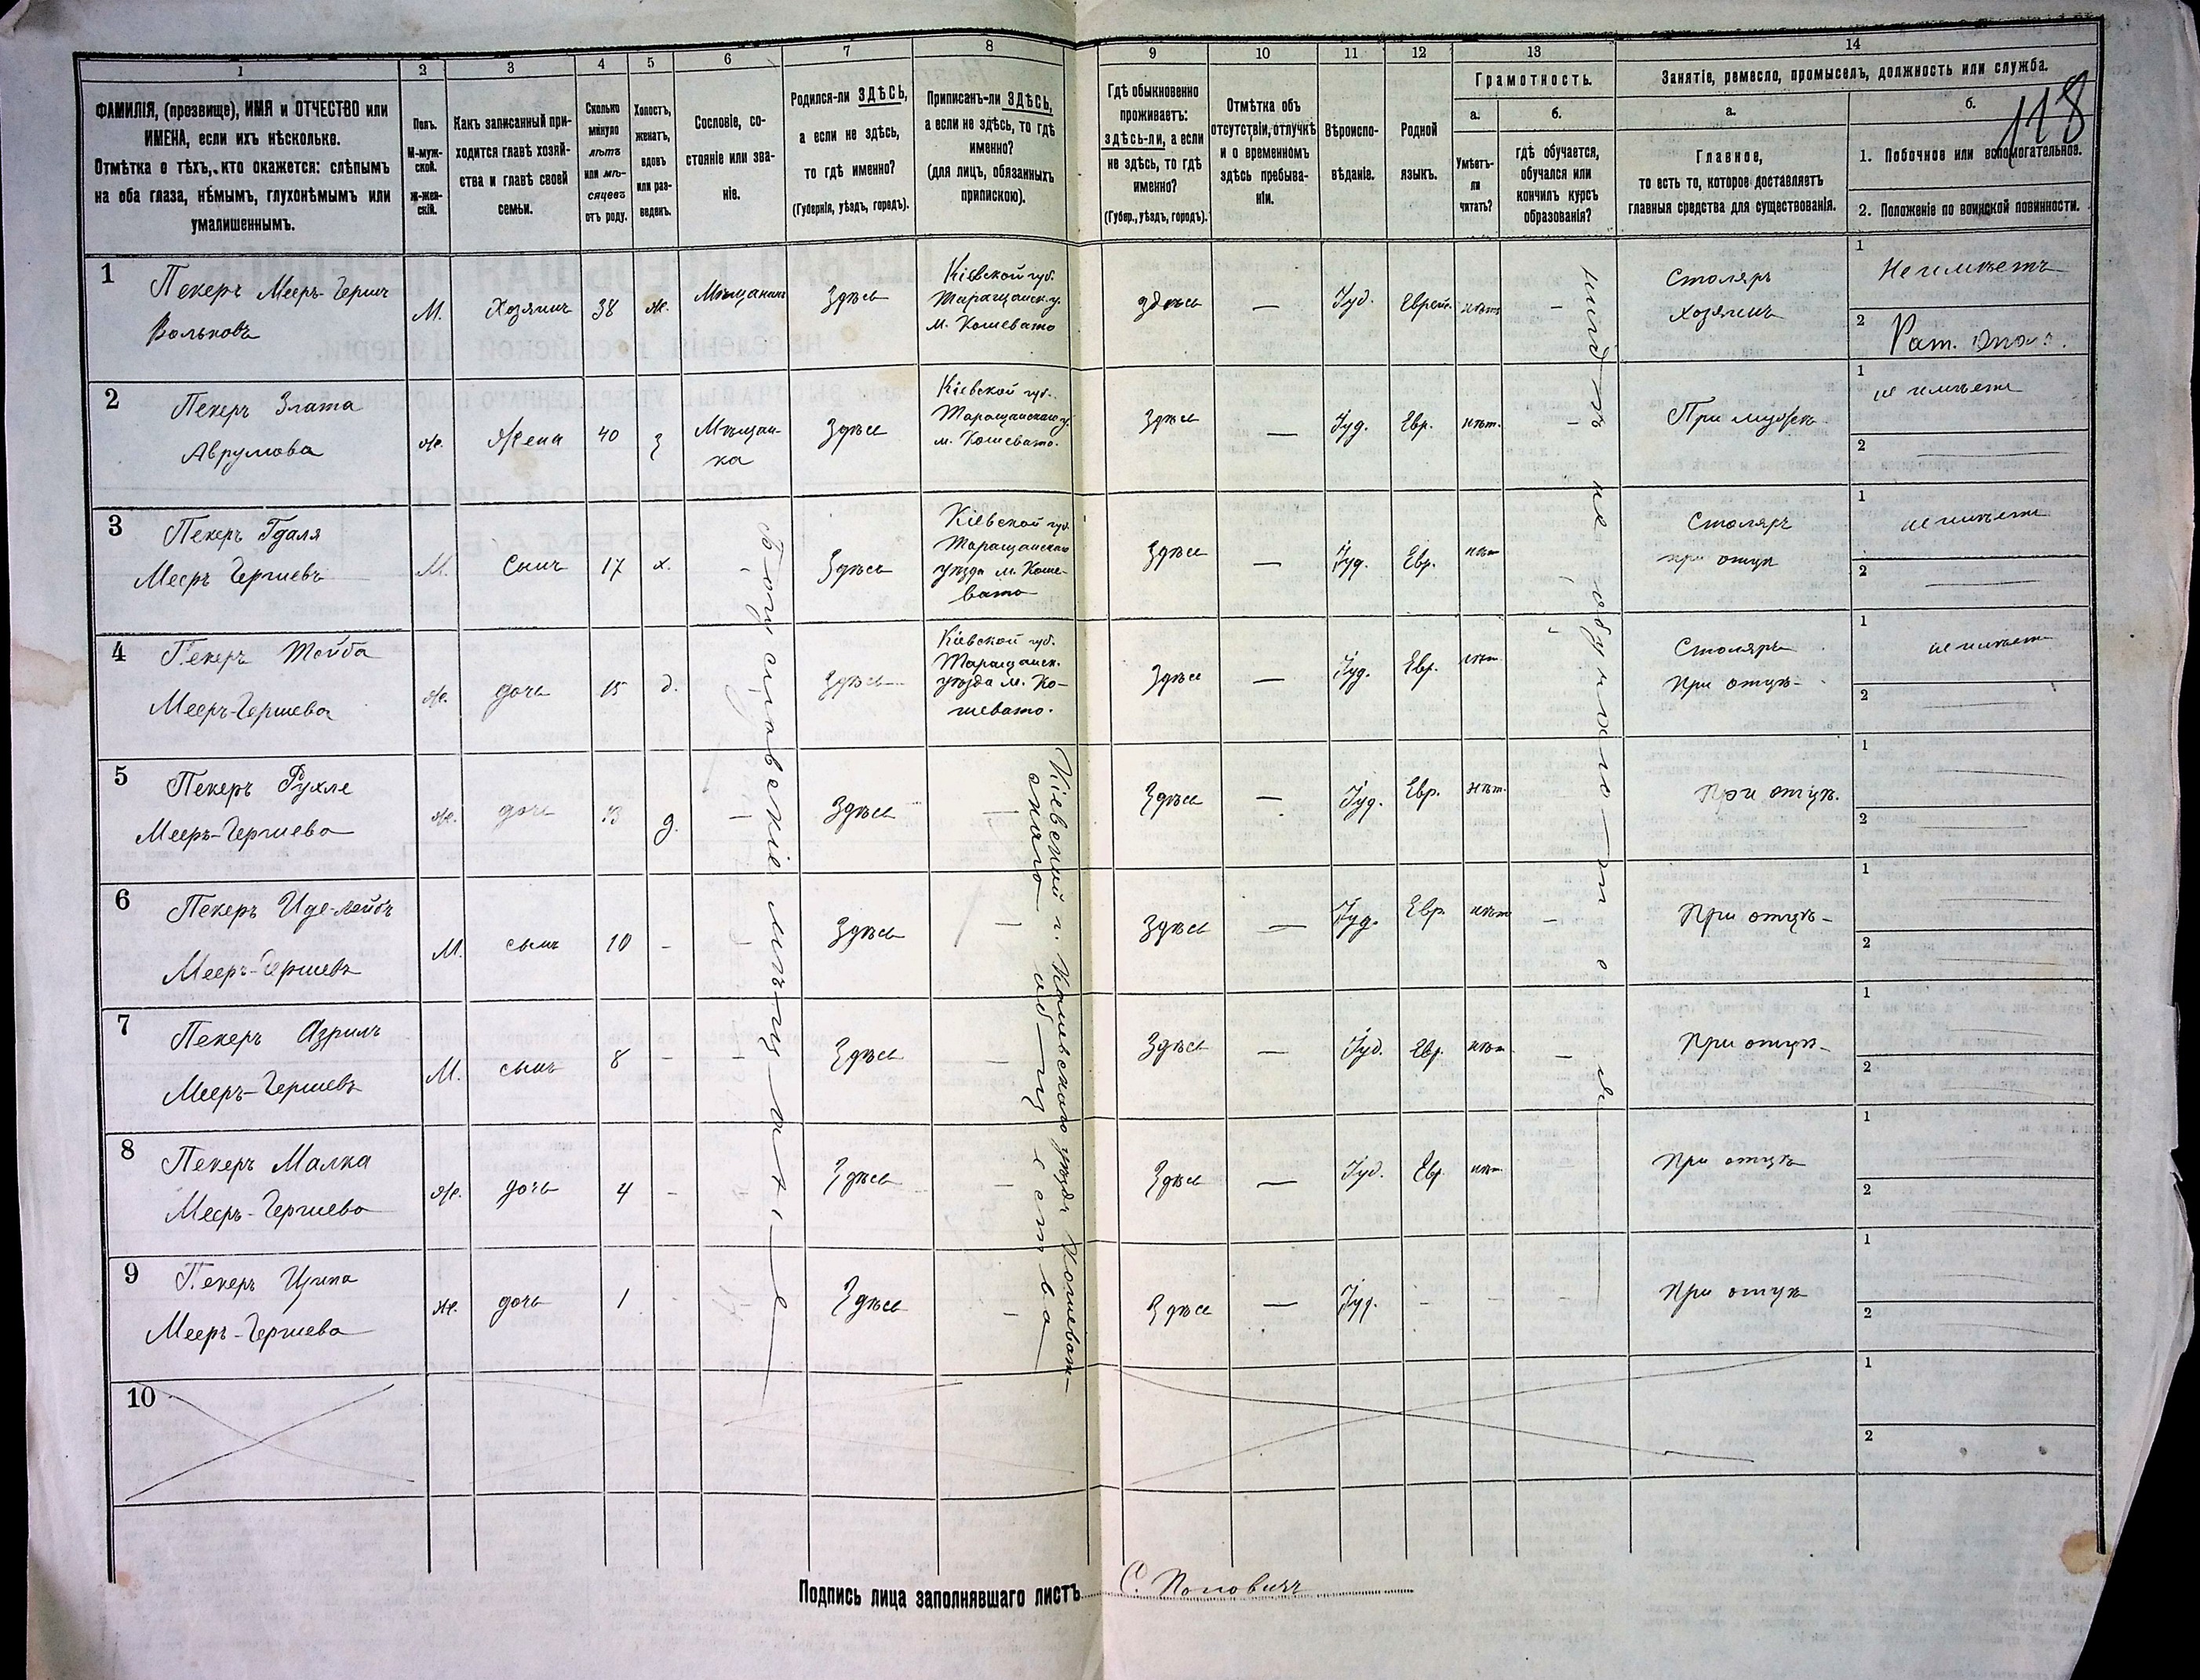 1
2
3
4
5
6
7
8
9
10
11
12
13
14
ФАМИЛІЯ, (прозвище), ИМЯ и ОТЧЕСТВО или
ИМЕНА, если ихъ нѣсколько.
Отмѣтка о тѣхъ, кто окажется: слѣпымъ
на оба глаза, нѣмымъ, глухонѣмымъ или
умалишеннымъ.
Полъ.
М-муж-
ской.
ж-жен-
скій.
Какъ записанный при-
ходится главѣ хозяй-
ства и главѣ своей
семьи.
Сколько
минуло
лѣтъ
или мѣ-
сяцевъ
отъ роду.
Холостъ,
женатъ,
вдовъ
или раз-
веденъ.
Сословіе, со-
стояніе или зва-
ніе.
Родился-ли ЗДѢСЬ,
а если не здѣсь,
то гдѣ именно?
(Губернія, уѣздъ, городъ).
Приписанъ-ли ЗДѢСЬ,
а если не здѣсь, то гдѣ
именно?
(для лицъ, обязанныхъ
припискою).
Гдѣ обыкновенно
проживаетъ:
здѣсь-ли, а если
не здѣсь, то гдѣ
именно?
(Губер., уѣздъ, городъ).
Отмѣтка объ
отсутствіи, отлучкѣ
и о временномъ
здѣсь пребыва-
ніи.
Вѣроиспо-
вѣданіе.
Родной
языкъ.
Грамотность.
а.
Умѣетъ-
ли
читать?
б.
гдѣ обучается,
обучался или
кончилъ курсъ
образованія?
Занятіе, ремесло, промыселъ, должность или служба.
а.
Главное,
то есть то, которое доставляетъ
главныя средства для существованія.
б.
118
1. Побочное или вспомогательное.
2. Положеніе по воинской повинности.
1
Пекеръ Мееръ-Герш
Вольковъ
М. Хозяинъ 38 ж. Мѣщанинъ Здѣсь
Кіевской губ.
Таращанск. у.
м. Кошевато
здѣсь — Іуд. Еврейск. нѣтъ —
Столяръ
Хозяинъ
1 Не имѣетъ
2 Рат. Опол.
2
Пекеръ Злата
Аврумова
Ж. Жена 40 з Мѣщан-
ка
Здѣсь
Кіевской губ.
Таращанскаго у.
м. Кошевато.
Здѣсь — Іуд. Евр. нѣт. -
При мужѣ
1 не имѣетъ
2
3
Пекеръ Гдаля
Мееръ Гершевъ
М. Сынъ 17 х. Здѣсь
Кіевской губ.
Таращанскаго
уѣзда м. Коше-
вато
Здѣсь — Іуд. Евр. нѣт
Столяръ
при отцѣ
1 не имѣетъ
2
4
Пекеръ Тойба
Мееръ-Гершева
Ж. дочь 15 д. Здѣсь
Кіевской губ.
Таращанск.
уѣзда м. Ко-
шевато.
Здѣсь — Іуд. Евр. нѣт.
Столяръ
При отцѣ
1 не имѣетъ
2
5
Пекеръ Рухле
Мееръ-Гершева
Ж. дочь 13 д. — Здѣсь —
Здѣсь — Іуд. Евр. нѣт.
При отцѣ.
1
2
6
Пекеръ Иде-Лейбъ
Мееръ-Гершевъ
М. сынъ 10 - Здѣсь —
Здѣсь — Іуд. Евр. нѣт —
При отцѣ
1
2
7
Пекеръ Азрилъ
Мееръ-Гершевъ
М. сынъ 8 - - Здѣсь —
Здѣсь — Іуд. Евр. нѣт. —
При отцѣ
1
2
8
Пекеръ Малка
Мееръ-Гершева
Ж. дочь 4 - Здѣсь —
Здѣсь — Іуд. Евр нѣт.
При отцѣ
1
2
9
Пекеръ Ципа
Мееръ-Гершева
Ж. дочь 1 - Здѣсь —
Здѣсь — Іуд. - - -
При отцѣ
1
2
10
1
2
Богуславскіе мѣщане
Кіевской г. Каневскаго уѣзда
скаго общества
нигдѣ не обучался
Подпись лица заполнявшаго листъ С. Поповичъ